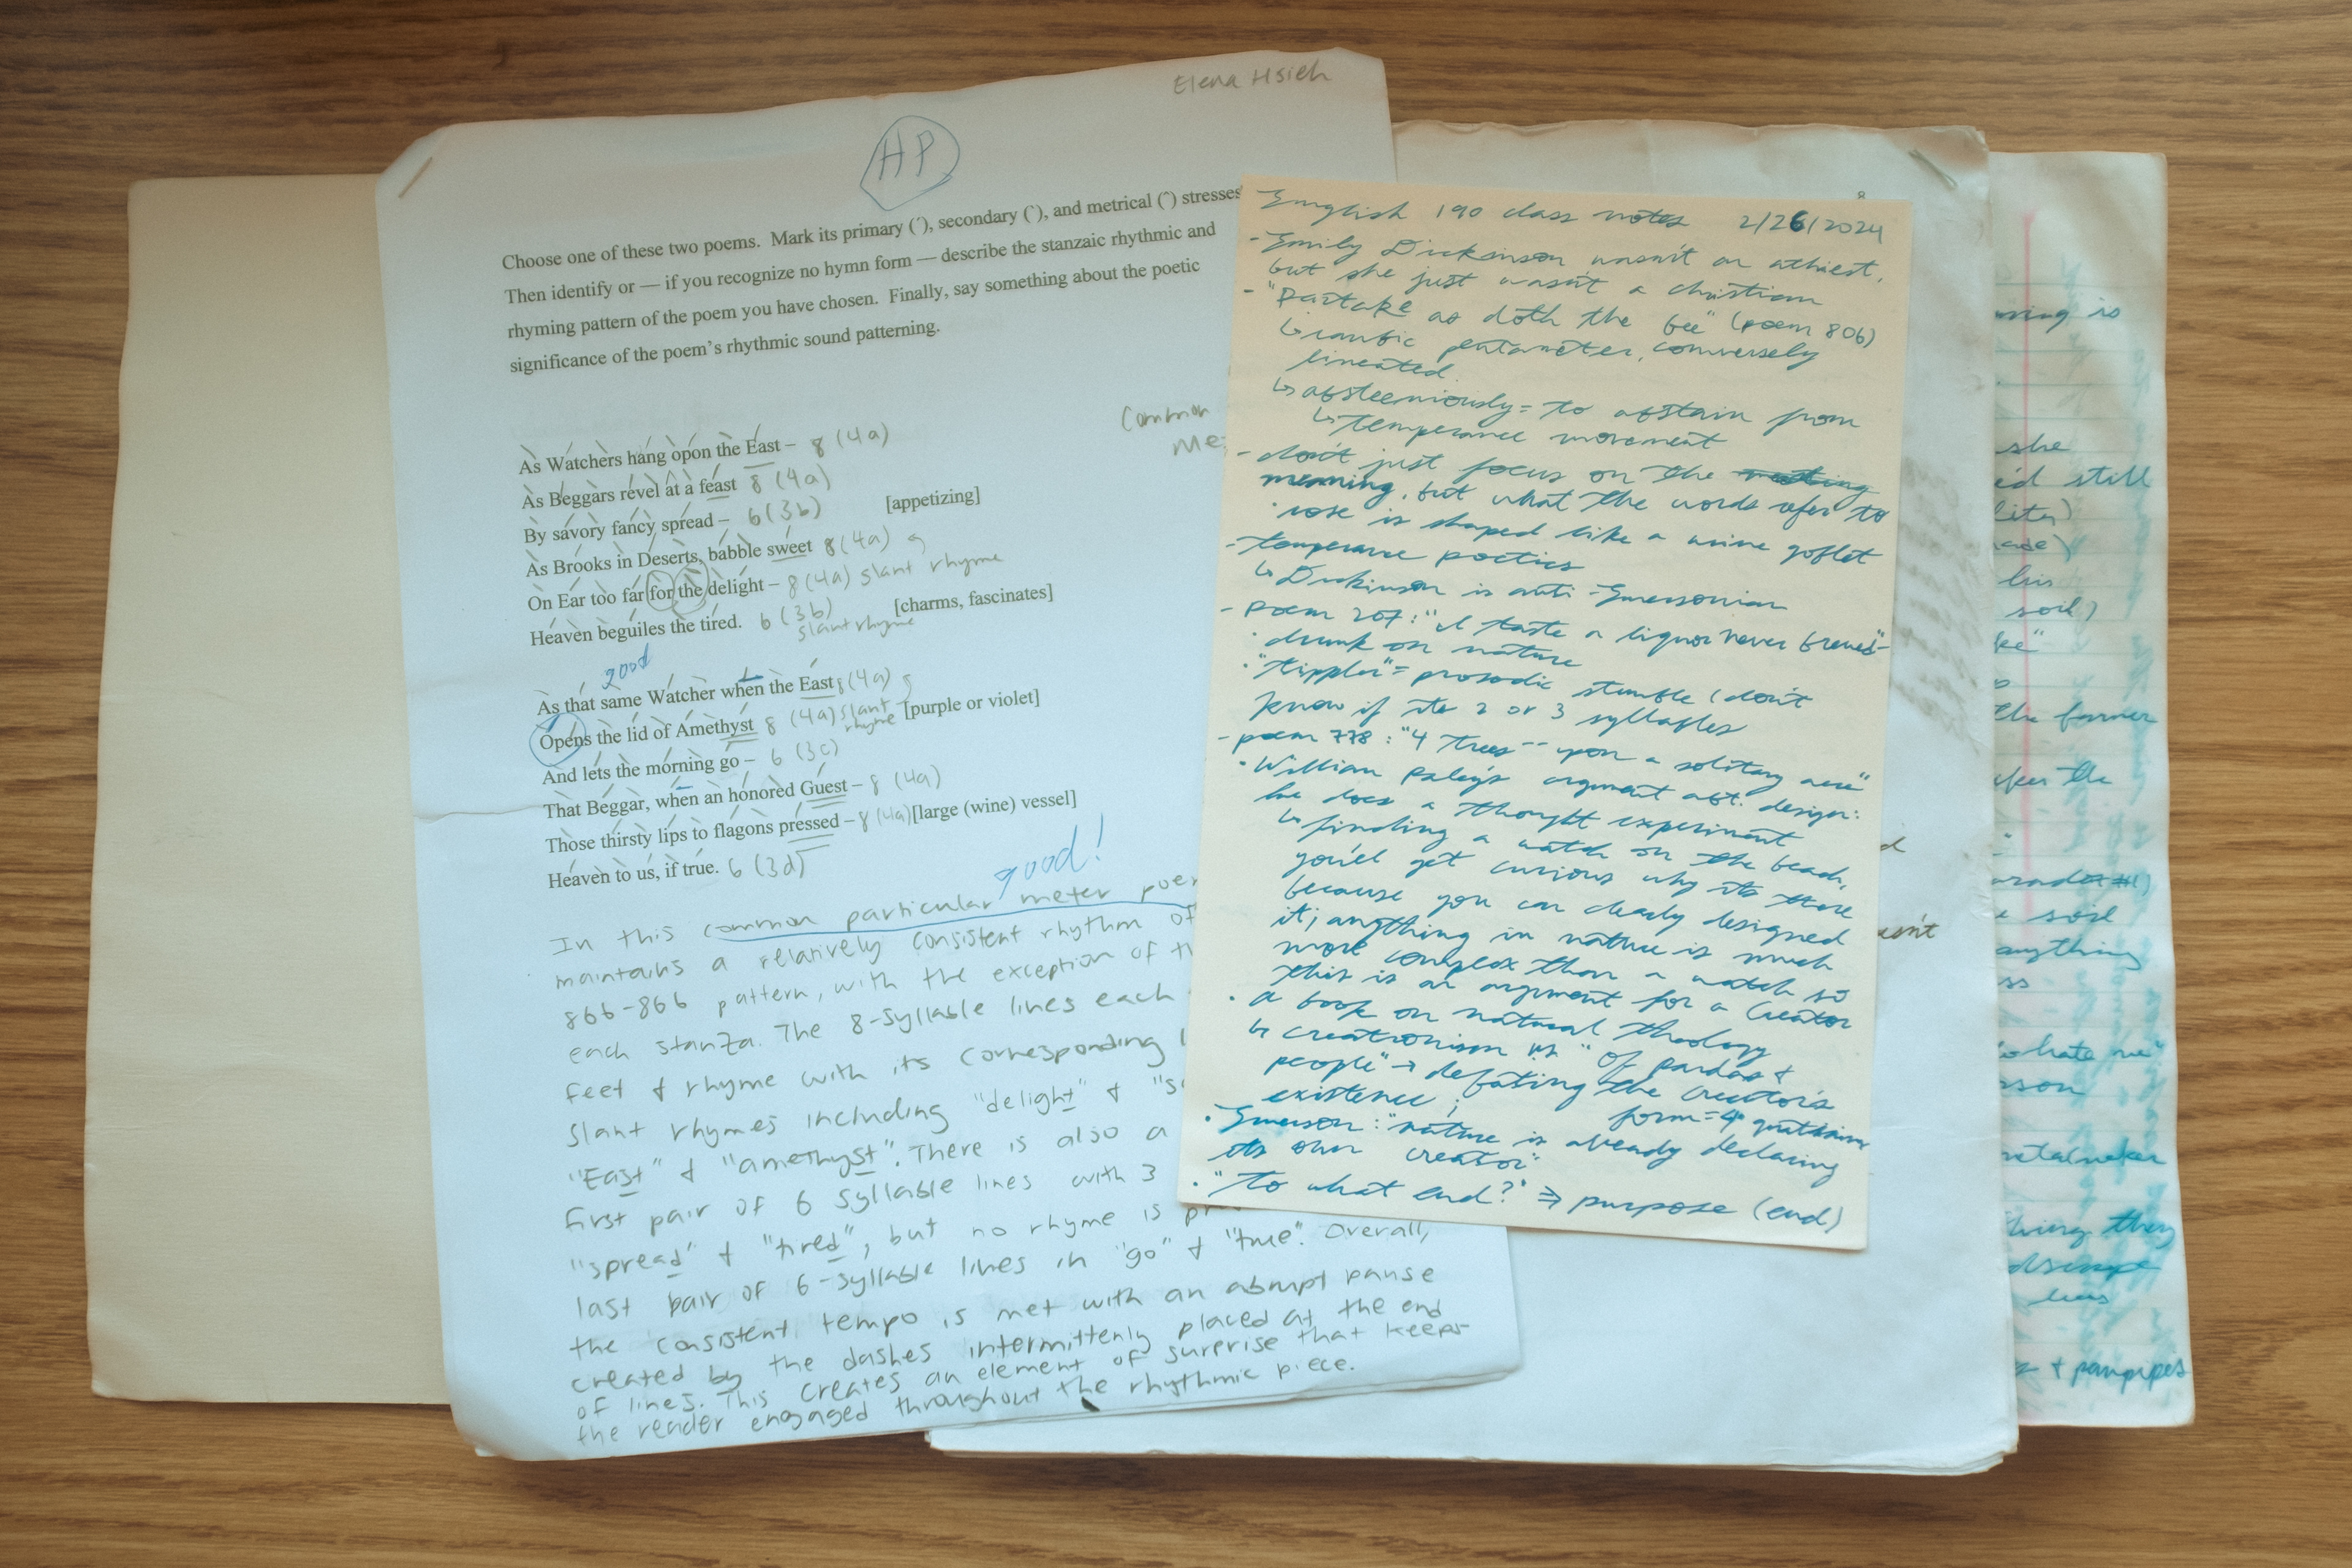 Elena Hsieh
HP
Choose one of these two poems. Mark its primary (´), secondary (`), and metrical (ˆ) stresses
Then identify or — if you recognize no hymn form — describe the stanzaic rhythmic and
rhyming pattern of the poem you have chosen. Finally, say something about the poetic
significance of the poem's rhythmic sound patterning.
Common
As Watchers hang opon the East – 8 (4a)
As Beggars revel at a feast 8 (4a)
By savory fancy spread – 6 (3b) [appetizing]
As Brooks in Deserts, babble sweet 8 (4a)
On Ear too far for the delight – 8 (4a) slant rhyme
Heaven beguiles the tired. 6 (3b) [charms, fascinates]
slant rhyme
good
As that same Watcher when the East 8 (4a)
Opens the lid of Amethyst 8 (4a) slant rhyme [purple or violet]
And lets the morning go – 6 (3c)
That Beggar, when an honored Guest – 8 (4a)
Those thirsty lips to flagons pressed – 8 (4a) [large (wine) vessel]
Heaven to us, if true. 6 (3d)
good!
In this common particular meter
maintains a relatively consistent rhythm of
866-866 pattern, with the exception of
each stanza. The 8-syllable lines each
feet & rhyme with its corresponding
slant rhymes including "delight" &
"East" & "amethyst". There is also a
first pair of 6 syllable lines with 3
"spread" & "tired", but no rhyme is
last pair of 6-syllable lines in "go" & "true". Overall,
the consistent tempo is met with an abrupt pause
created by the dashes intermittenly placed at the end
of lines. This creates an element of surprise that keeps
the reader engaged throughout the rhythmic piece.
8
English 190 class notes 2/26/2024
- Emily Dickinson wasn't an athiest,
but she just wasn't a christian
- "Partake as doth the bee" (poem 806)
↳ iambic pentameter, conversely
lineated
↳ absteemiously = to abstain from
↳ temperance movement
- don't just focus on the
meaning, but what the words refer to
· rose is shaped like a wine goblet
- temperance poetics
↳ Dickinson is anti-Emersonian
- poem 207: "I taste a liquor never brewed-"
· drunk on nature
· "tippler" = prosodic stumble (don't
know if its 2 or 3 syllables
- poem 778: "4 trees -- upon a solitary acre"
· William Paley's argument abt. design:
he does a thought experiment
↳ finding a watch on the beach,
you'll get curious why its there
because you can clearly designed
it; anything in nature is much
more complex than a watch so
this is an argument for a Creator
· a book on natural theology
↳ creationism is "of pardas &
people" → defating the creator's
existence; form = 4 quatrains
· Emerson: "nature is already declaring
its own creator"
· "to what end?" ⇒ purpose (end)
is
she
still
his
soil)
the farmer
the
soil
anything
hate me"
they
& panpipes